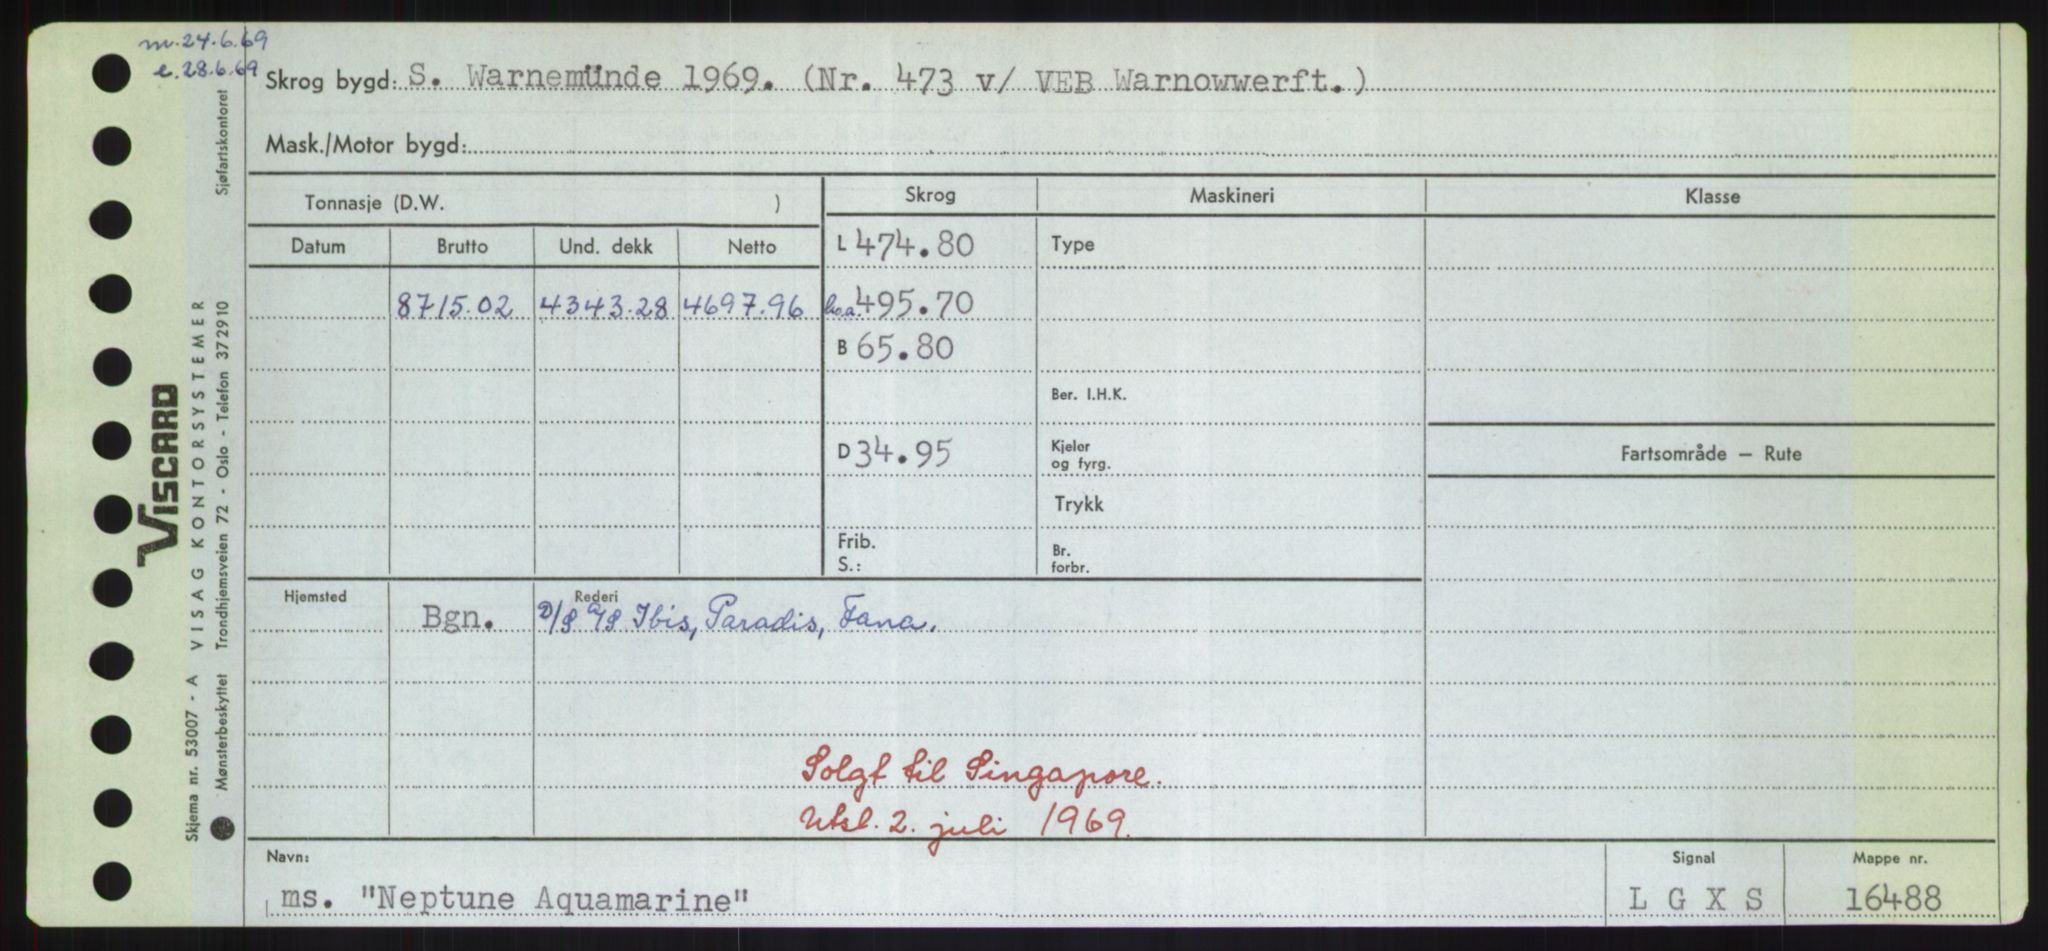 m. 24.6.69
e. 28.6.69
Skrog bygd: S. Warnemünde 1969. (Nr. 473 v/ VEB Warnowwerft.)
Mask./Motor bygd:
Tonnasje (D.W. )
Skrog
Maskineri
Klasse
Datum
Brutto
Und. dekk
Netto
L 474.80
Type
8715.02
4343.28
4697.96
l.o.a. 495.70
B 65.80
Ber. I.H.K.
D 34.95
Kjeler
og fyrg.
Fartsområde — Rute
Trykk
Frib.
S.:
Br.
forbr.
Hjemsted
Rederi
Bgn.
D/S A/S Ibis, Paradis, Fana.
Solgt til Singapore.
Utsl. 2. juli 1969.
Navn:
ms. "Neptune Aquamarine"
Signal
L G X S
Mappe nr.
16488
VISCARD
Skjema nr. 53007 - A VISAG KONTORSYSTEMER
Mønsterbeskyttet Trondhjemsveien 72 - Oslo - Telefon 372910 Sjøfartskontoret